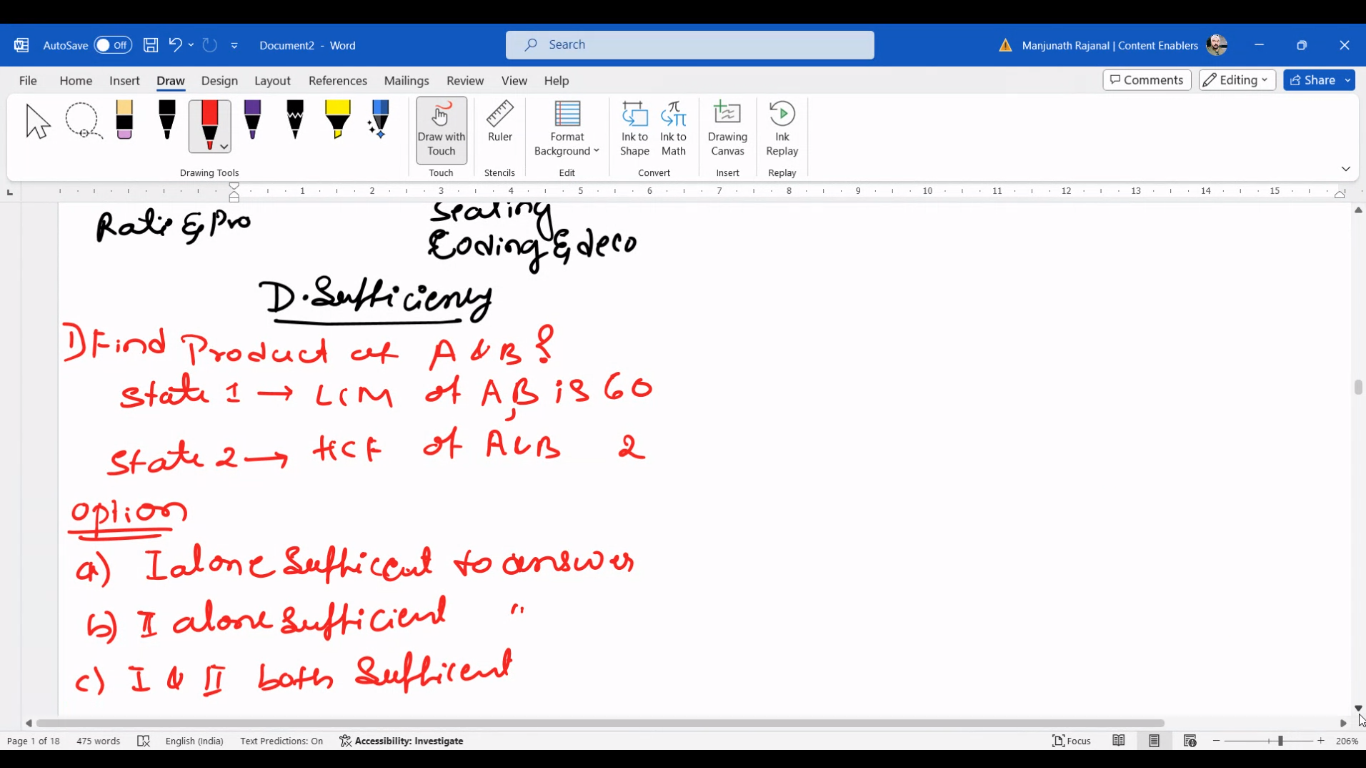 AutoSave Off Document2 - Word Search Manjunath Rajanal | Content Enablers
File Home Insert Draw Design Layout References Mailings Review View Help Comments Editing Share
Draw with Touch Ruler Format Background Ink to Shape Ink to Math Drawing Canvas Ink Replay
Drawing Tools Touch Stencils Edit Convert Insert Replay
1 2 3 4 5 6 7 8 9 10 11 12 13 14 15
Seating
Ratio & Pro
Coding & deco
D. Sufficiency
1) Find Product of A & B ?
State 1 → LCM of A, B is 60
State 2 → HCF of A & B 2
Option
a) I alone Sufficent to answer
b) II alone Sufficient "
c) I & II both Sufficent
Page 1 of 18 475 words English (India) Text Predictions: On Accessibility: Investigate Focus 206%